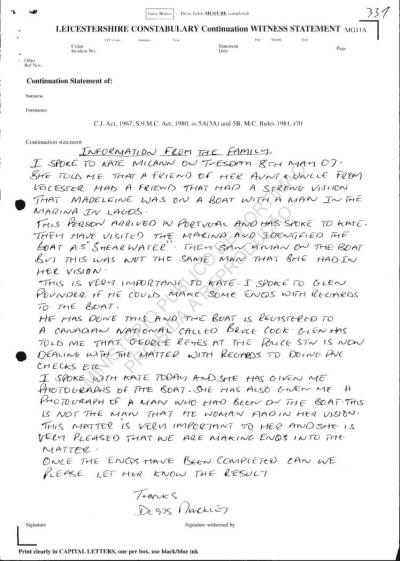 Grey Boxes - These fields MUST BE completed
337
LEICESTERSHIRE CONSTABULARY Continuation WITNESS STATEMENT MG11A
Number Year Day Month Year
Crime
Incident No.
Statement
Date
Page
Other
Ref Nos.
Continuation Statement of:
Surname
Forenames
C.J. Act, 1967, S.9 M.C. Act, 1980, ss 5A(3A) and 5B, M.C. Rules 1981, r70
Continuation statement
INFORMATION FROM THE FAMILY
I SPOKE TO KATE MCCANN ON TUESDAY 8TH MAY 07.
SHE TOLD ME THAT A FRIEND OF HER AUNT & UNCLE FROM
LEICESTER HAD A FRIEND THAT HAD A STRONG VISION
THAT MADELEINE WAS ON A BOAT WITH A MAN IN THE
MARINA IN LAGOS.
THIS PERSON ARRIVED IN PORTUGAL AND HAS SPOKE TO KATE.
THEY HAVE VISITED THE MARINA AND IDENTIFIED THE
BOAT AS "SHEARWATER". THEY SAW A MAN ON THE BOAT
BUT THIS WAS NOT THE SAME MAN THAT SHE HAD IN
HER VISION.
THIS IS VERY IMPORTANT TO KATE. I SPOKE TO GLEN
POUNDER IF HE COULD MAKE SOME ENQS WITH REGARDS
TO THE BOAT.
HE HAS DONE THIS AND THE BOAT IS REGISTERED TO
A CANADIAN NATIONAL CALLED BRUCE COOK. GLEN HAS
TOLD ME THAT GEORGE REYES AT THE POLICE STN IS NOW
DEALING WITH THE MATTER WITH REGARDS TO DOING PNC
CHECKS ETC
I SPOKE WITH KATE TODAY AND SHE HAS GIVEN ME
PHOTOGRAPHS OF THE BOAT. SHE HAS ALSO GIVEN ME A
PHOTOGRAPH OF A MAN WHO HAD BEEN ON THE BOAT. THIS
IS NOT THE MAN THAT THE WOMAN HAD IN HER VISION.
THIS MATTER IS VERY IMPORTANT TO HER AND SHE IS
VERY PLEASED THAT WE ARE MAKING ENQS INTO THE
MATTER.
ONCE THE ENQS HAVE BEEN COMPLETED CAN WE
PLEASE LET HER KNOW THE RESULT
THANKS
Signature Signature witnessed by
Print clearly in CAPITAL LETTERS, one per box, use black/blue ink